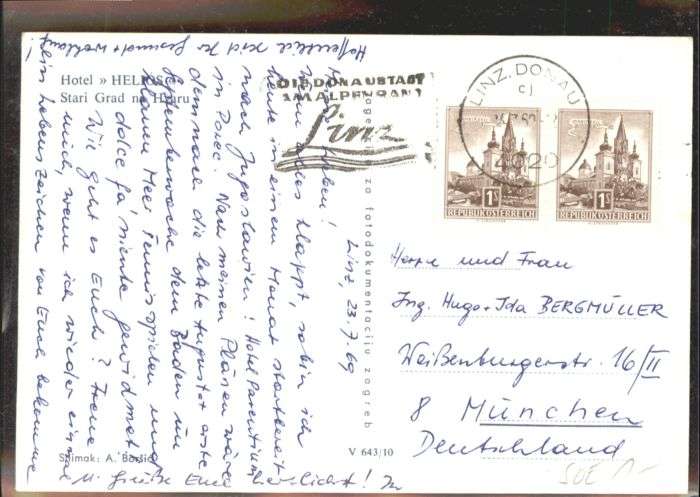 Hotel » HELIOS «
Stari Grad na Hvaru
DIE DONAUSTADT
AM ALPENRAND
Linz
LINZ, DONAU
cj
4020
1 S
REPUBLIK ÖSTERREICH
1 S
REPUBLIK ÖSTERREICH
Linz, 23.7.69
Ihr Lieben!
Wenn alles klappt, so bin ich
heute in einem Monat startbereit
nach Jugoslawien! Hotel Parentium
in Porec. Nach meinen Plänen würde
demnach die letzte August & erste
Septemberwoche dem Baden im
blauen Meer Tennisspielen und
dolce fa' niente gewidmet.
Wie geht es Euch? Freue
mich, wenn ich wieder einmal
ein Lebenszeichen von Euch bekomme
Hoffentlich seid Ihr gesund & wohlauf!
Grüße Euch herzlichst!
zagreb za fotodokumentaciju zagreb
Snimak: A. Boršić
V 643/10
Herrn und Frau
Ing. Hugo + Ida BERGMÜLLER
Weißenburgerstr. 16/II
8 München
Deutschland